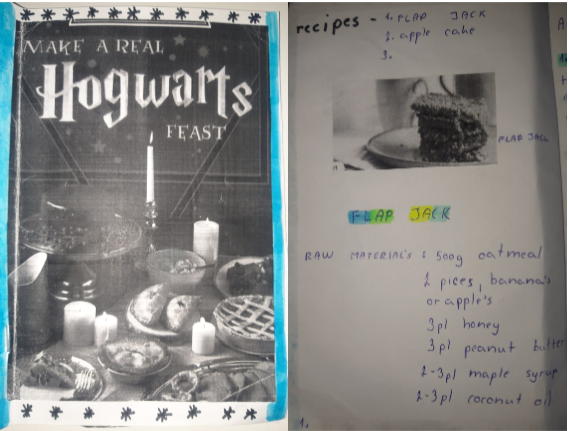 MAKE A REAL
Hogwarts
FEAST
recipes - 1. FLAP JACK
2. apple cake
3.
FLAP JACK
FLAP JACK
RAW MATERIAL'S : 500g oatmeal
2 pices, banana's
or apple's
3pl honey
3pl peanut butter
2-3pl maple syrup
2-3pl coconut oil
1.